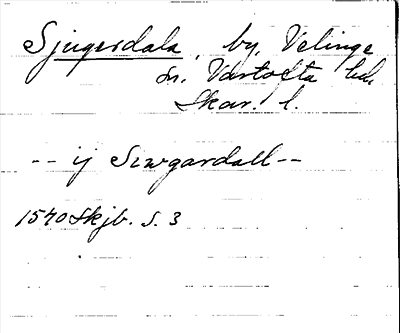 Sjugerdala, by, Velinge
sn. Vartofta hd.
Skar. l.
-- ij Siwgardall --
1540 Skjb. S. 3